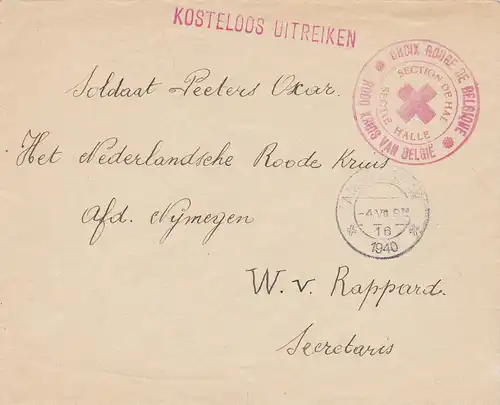 KOSTELOOS UITREIKEN
CROIX ROUGE DE BELGIQUE
ROOD KRUIS VAN BELGIË
SECTION DE HAL
SECTIE
HALLE
Soldaat Peeters Oxar.
Het Nederlandsche Roode Kruis
Afd. Nymegen
-4.VII.
16
1940
W. v. Rappard.
Secretaris